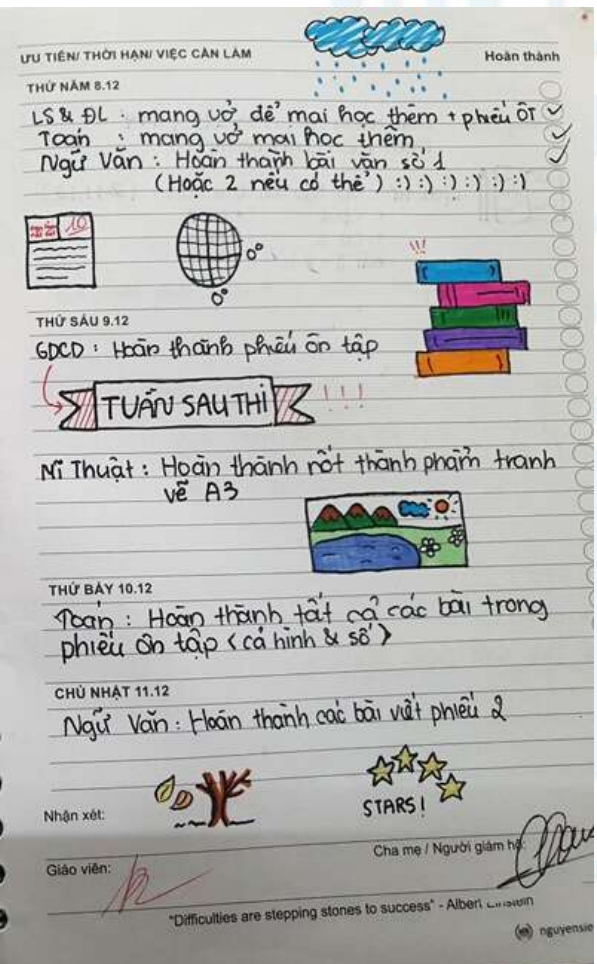 ƯU TIÊN/ THỜI HẠN/ VIỆC CẦN LÀM
Hoàn thành
THỨ NĂM 8.12
LS & ĐL : mang vở để mai học thêm + phiếu ÔT
Toán : mang vở mai học thêm
Ngữ Văn : Hoàn thành bài văn số 1
(Hoặc 2 nếu có thể) :) :) :) :) :) :)
10
0°
0°
!!!
THỨ SÁU 9.12
GDCD : Hoàn thành phiếu ôn tập
TUẦN SAU THI !!!
Mĩ Thuật : Hoàn thành nốt thành phẩm tranh
vẽ A3
THỨ BẢY 10.12
Toán : Hoàn thành tất cả các bài trong
phiếu ôn tập (cả hình & số)
CHỦ NHẬT 11.12
Ngữ Văn : Hoàn thành các bài viết phiếu 2
STARS!
Nhận xét:
Cha mẹ / Người giám hộ:
Giáo viên:
"Difficulties are stepping stones to success" - Albert Einstein
nguyensie